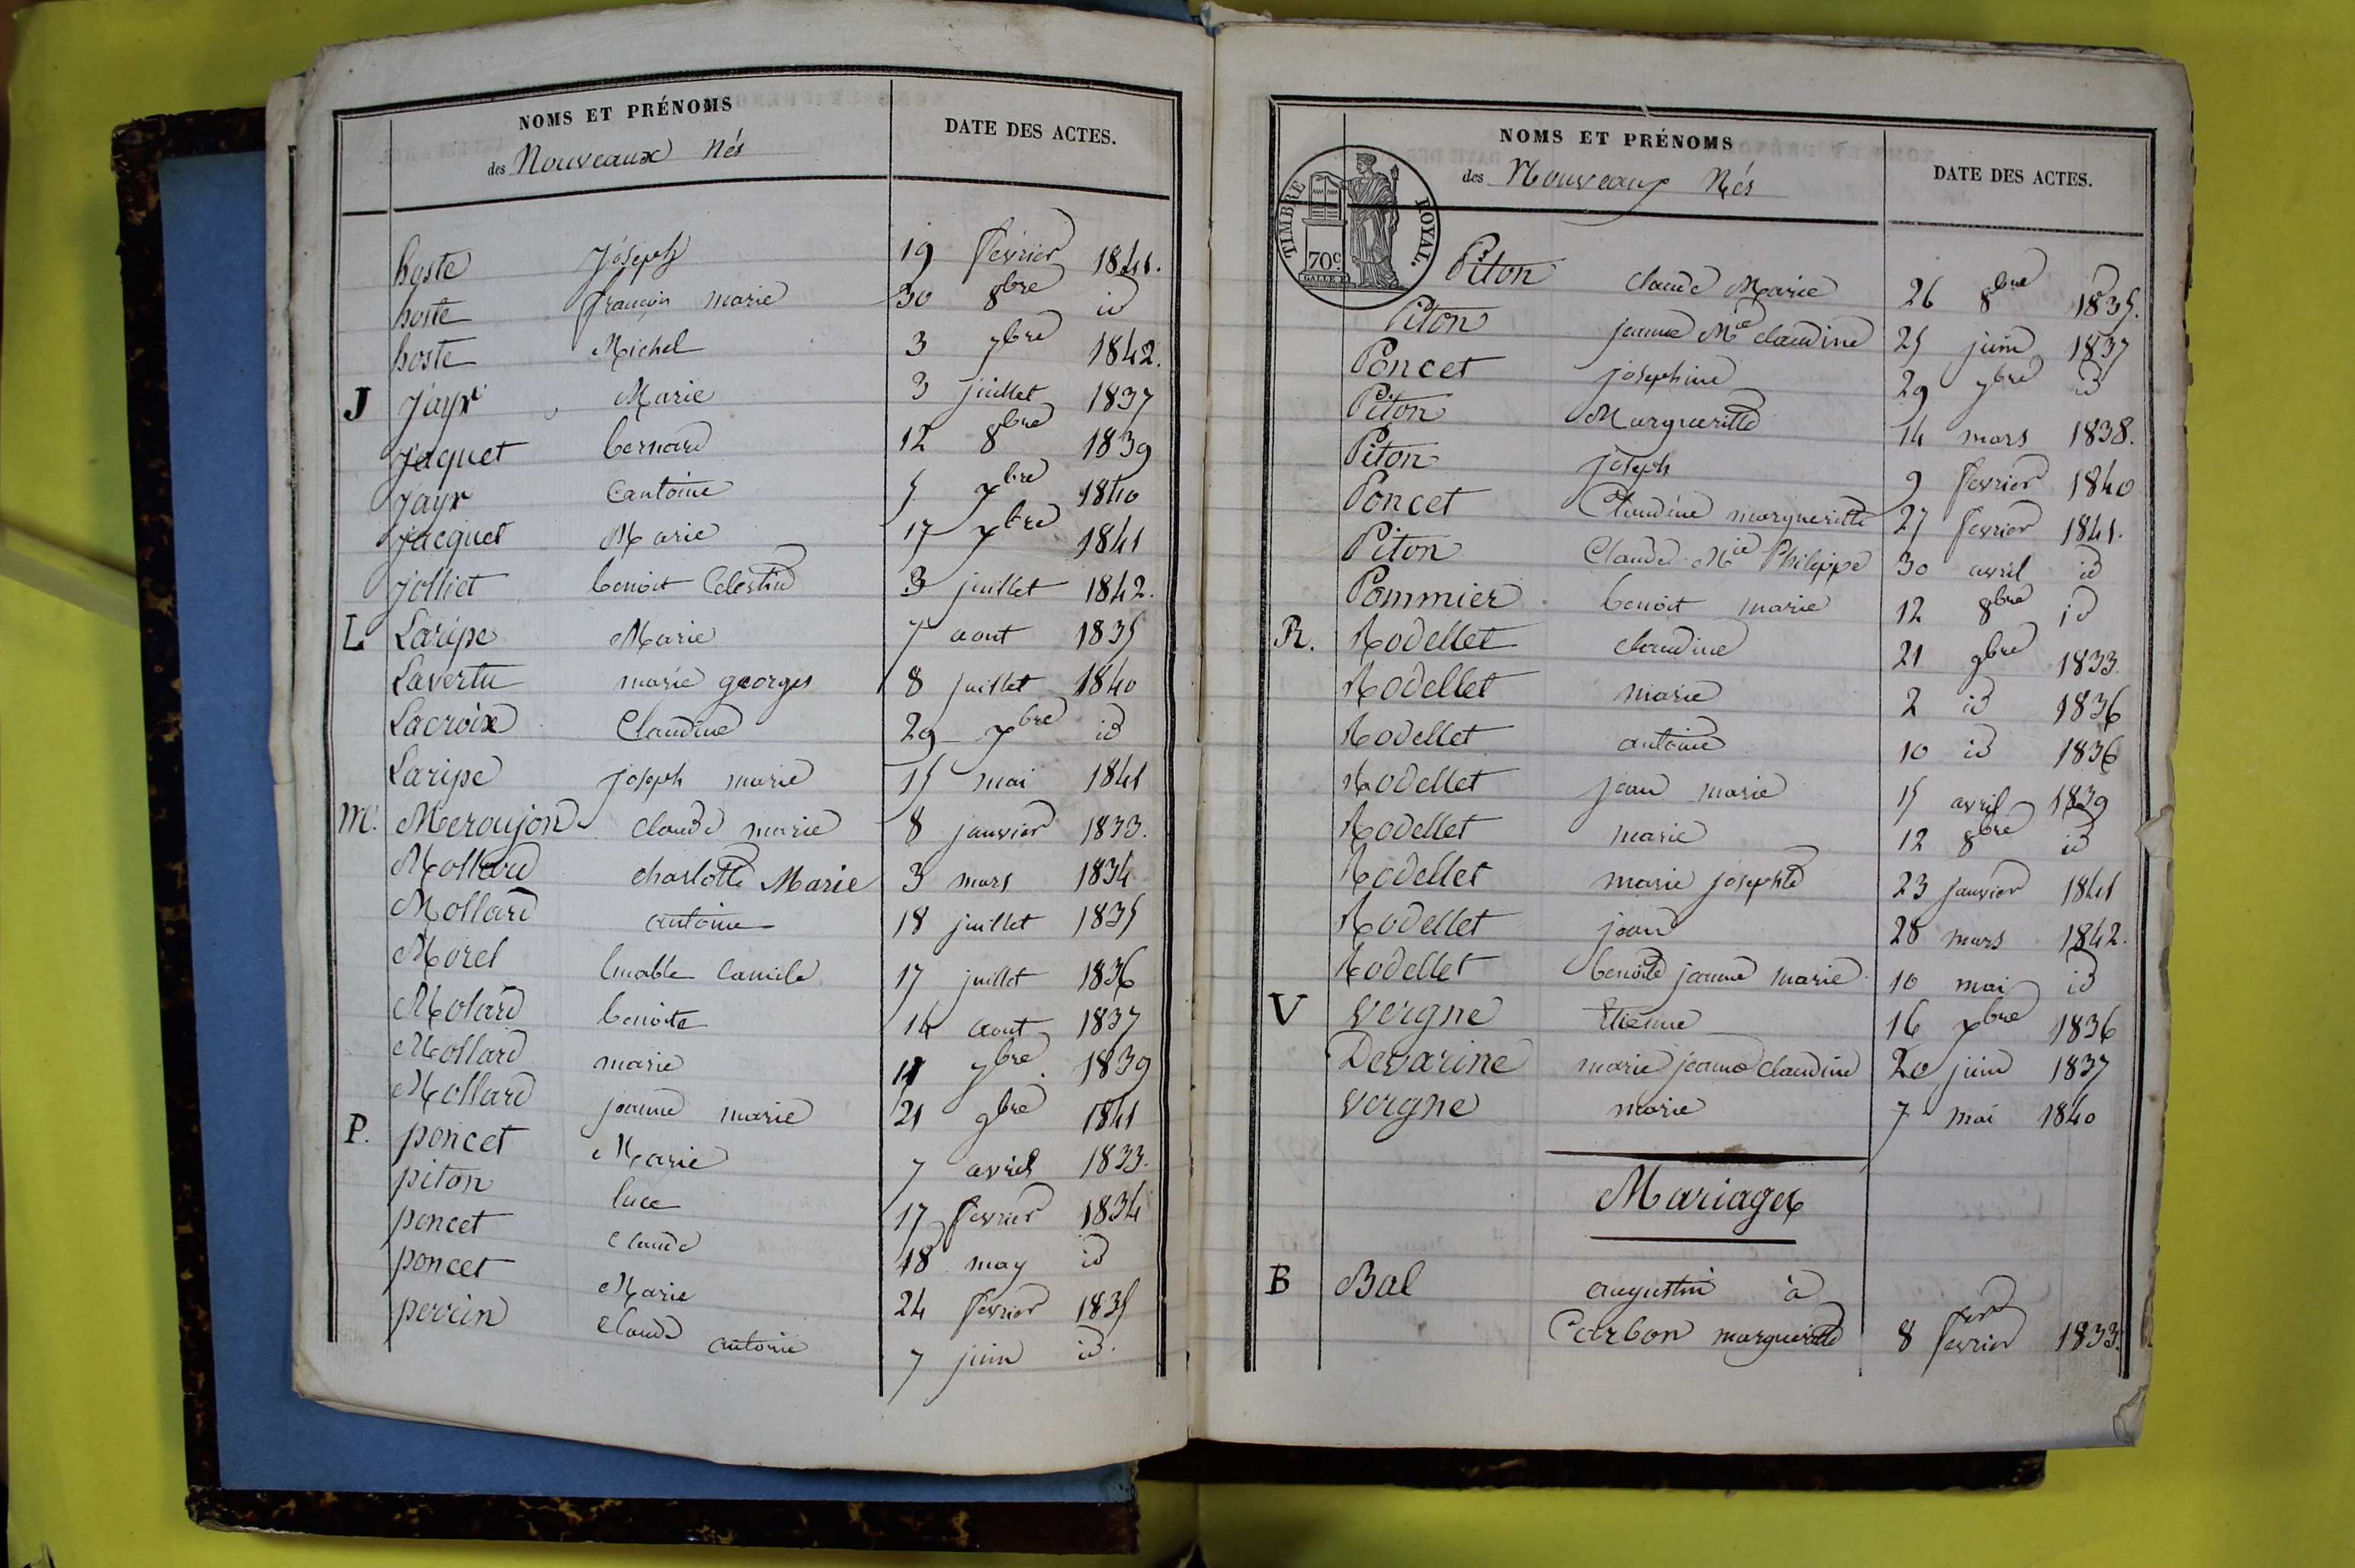 NOMS ET PRÉNOMS
DATE DES ACTES.
des Nouveaux Nés
hoste Joseph 19 fevrier 1841.
hoste françois marie 30 8bre id
hoste Michel 3 7bre 1842.
J Jayr Marie 3 juillet 1837
Jaquet bernard 12 8bre 1839
Jayr antoine 5 7bre 1840
Jacquet Marie 17 7bre 1841
Jolliet benoit Celestin 3 juillet 1842.
L Laripe Marie 7 aout 1835
Lavertu marie georges 8 juillet 1840
Lacroix Claudine 29 7bre id
Laripe joseph marie 15 mai 1841
M. Meroujon claude marie 8 janvier 1833.
Mollard charlotte Marie 3 mars 1834
Mollard antoine 18 juillet 1835
Morel camile 17 juillet 1836
Molard benoite 14 aout 1837
Mollard marie 11 7bre 1839
Mollard jeanne marie 21 9bre 1841
P. poncet Marie 7 avril 1833.
piton luce 17 fevrier 1834
poncet claude 18 may id
poncet Marie 24 fevrier 1835
perrin claude antoine 7 juin id.
NOMS ET PRÉNOMS
DATE DES ACTES.
des Nouveaux Nés
TIMBRE ROYAL.
70c
Piton claude Marie 26 8bre 1835.
Piton jeanne Mie claudine 25 juin 1837
Poncet josephine 29 7bre id
Piton Margueritte 14 mars 1838.
Piton joseph 9 fevrier 1840
Poncet Claudine margueritte 27 fevrier 1841.
Piton Claude Mie Philippe 30 avril id
Pommier benoit marie 12 8bre id
R. Rodellet claudine 21 9bre 1833
Rodellet marie 2 id 1836
Rodellet antoine 10 id 1836
Rodellet jean marie 15 avril 1839
Rodellet marie 12 8bre id
Rodellet marie josephte 23 janvier 1841
Rodellet jean 28 mars 1842.
Rodellet benoite jeanne marie 10 mai id
V vergne Etienne 16 7bre 1836
Devarine marie jeanne claudine 20 juin 1837
vergne marie 7 mai 1840
Mariages
B Bal augustin à
Carbon margueritte 8 fevrier 1833.